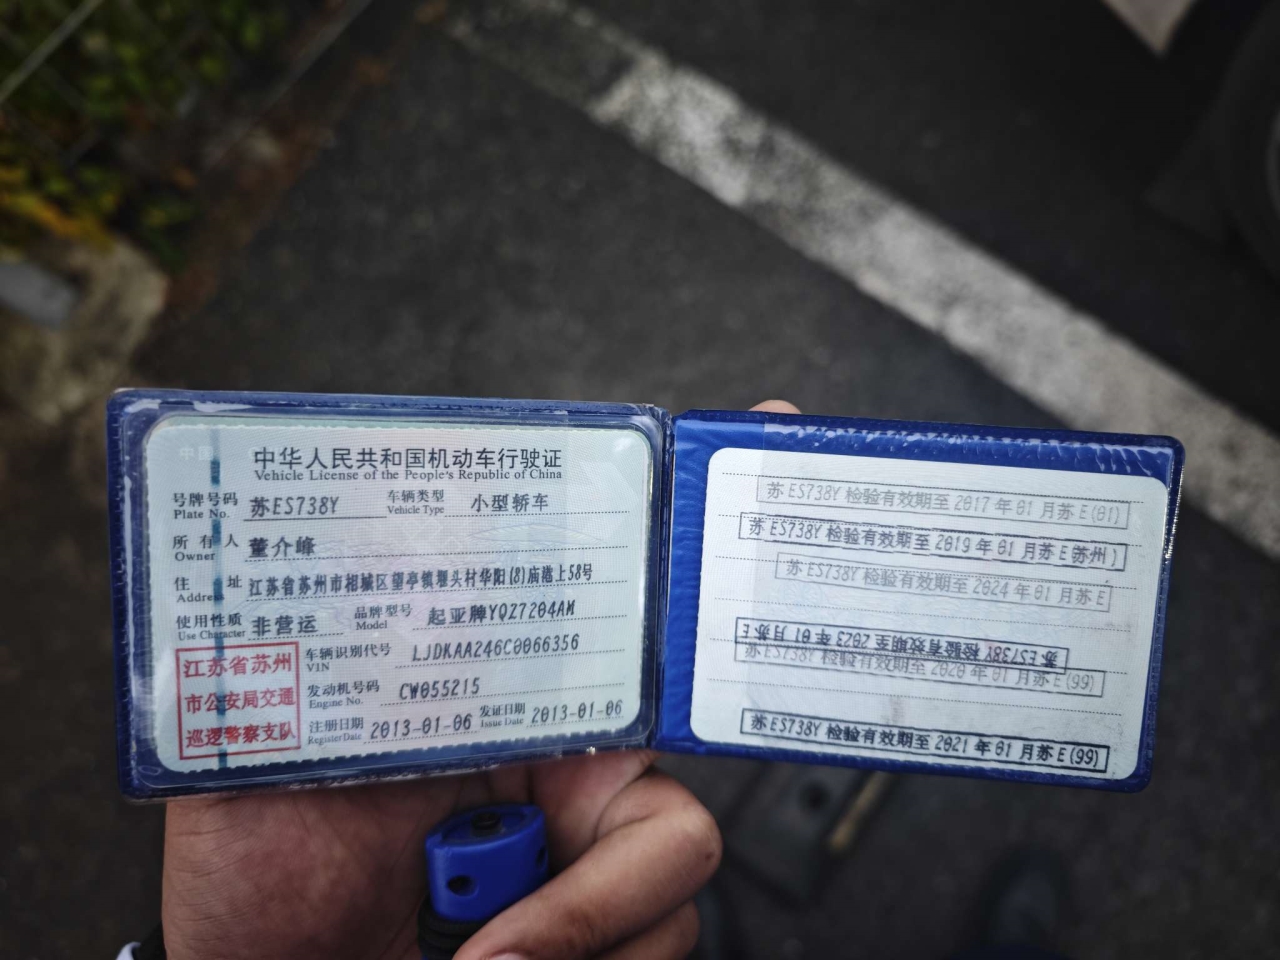 中华人民共和国机动车行驶证
Vehicle License of the People's Republic of China
号牌号码 苏ES738Y 车辆类型 小型轿车
Plate No. Vehicle Type
所有人 董介峰
Owner
住址 江苏省苏州市相城区望亭镇堰头村华阳(8)庙港上58号
Address
使用性质 非营运 品牌型号 起亚牌YQZ7204AM
Use Character Model
江苏省苏州
市公安局交通
巡逻警察支队
车辆识别代号 LJDKAA246C0066356
VIN
发动机号码 CW055215
Engine No.
注册日期 2013-01-06 发证日期 2013-01-06
Register Date Issue Date
苏ES738Y 检验有效期至 2017 年 01 月苏 E(01)
苏 ES738Y 检验有效期至 2019 年 01 月苏 E(苏州)
苏 ES738Y 检验有效期至 2024 年 01 月苏 E
苏 ES738Y 检验有效期至 2023 年 01 月苏 E
苏 ES738Y 检验有效期至 2020 年 01 月苏 E(99)
苏 ES738Y 检验有效期至 2021 年 01 月苏 E(99)